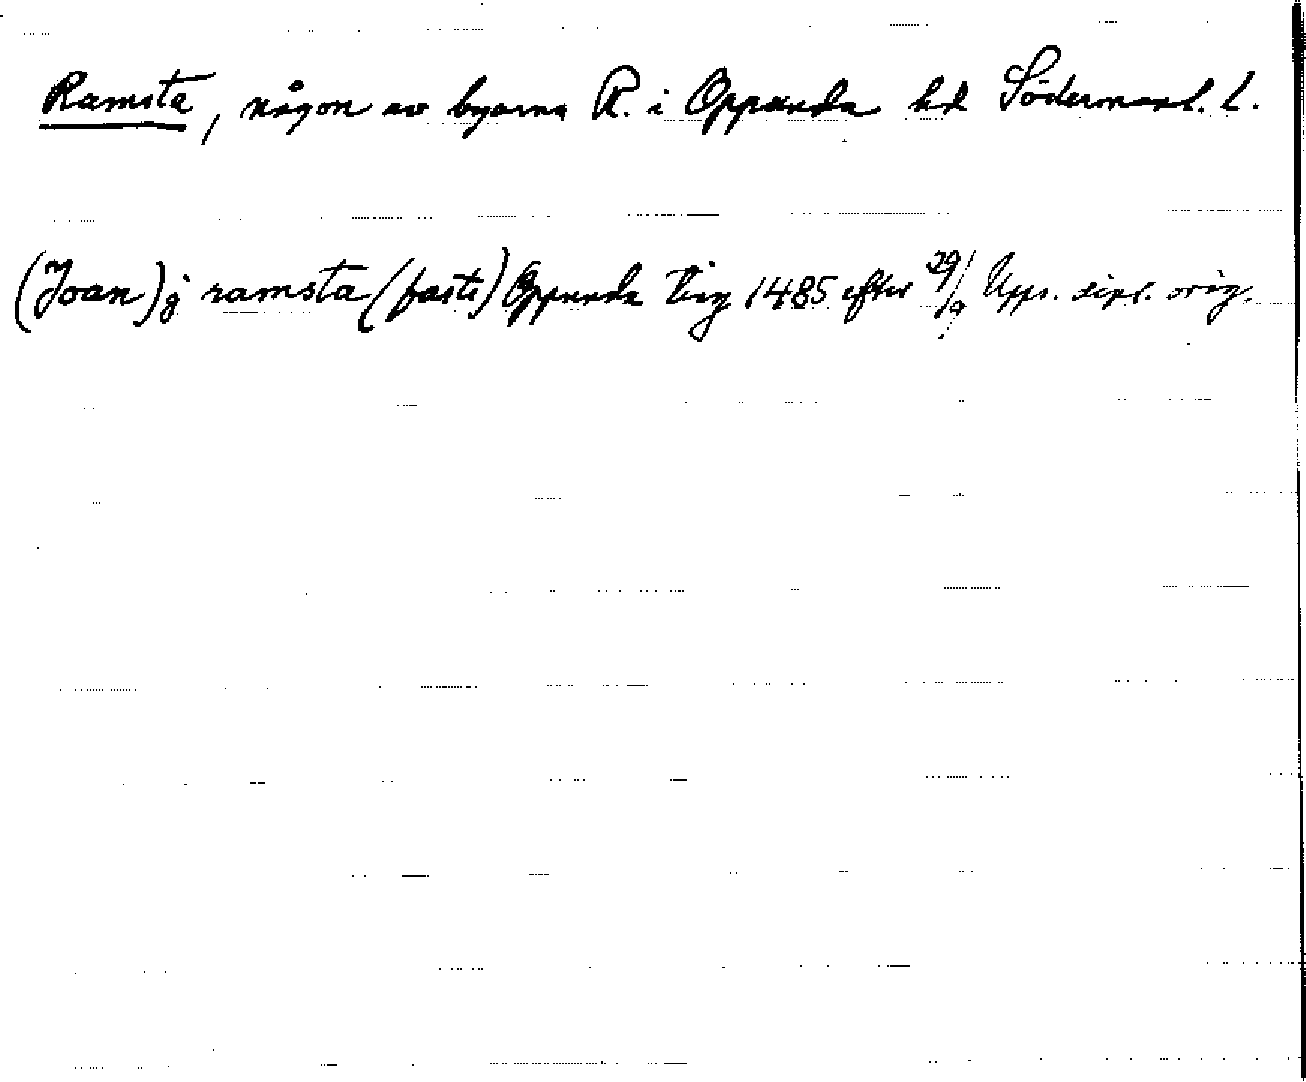 Ramsta, någon av byarna R. i Oppunda hd Södermanl. l.
(Joan) j ramsta (faste) Oppunda ting 1485 efter 29/9 Upps. dipl. orig.